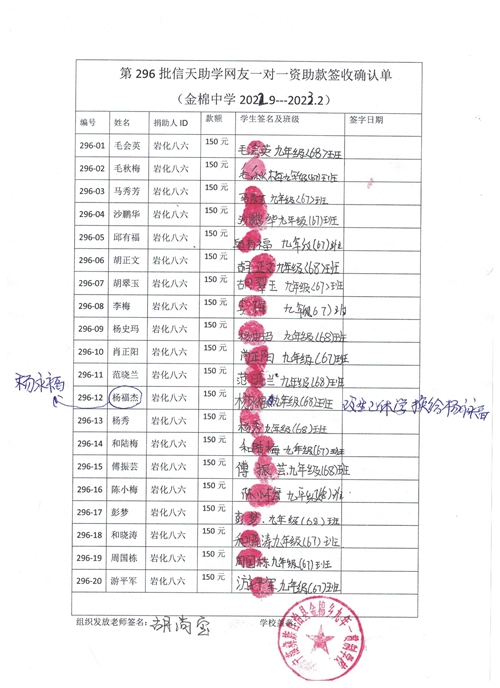 第 296 批信天助学网友一对一资助款签收确认单
（金棉中学 2022.9---2023.2）
编号 姓名 捐助人 ID 款额 学生签名及班级 签字日期
296-01 毛会英 岩化八六 150 元 毛会英 九年级(68)班班
296-02 毛秋梅 岩化八六 150 元 毛秋梅九年级(67)班班
296-03 马秀芳 岩化八六 150 元 九年级(67)班班
296-04 沙鹏华 岩化八六 150 元 华九年级(67)班班
296-05 邱有福 岩化八六 150 元 邱有福 九年级(67)班班
296-06 胡正文 岩化八六 150 元 胡正文九年级(68)班班
296-07 胡翠玉 岩化八六 150 元 胡翠玉 九年级(67)班班
296-08 李梅 岩化八六 150 元 李梅 九年级(67)班班
296-09 杨史玛 岩化八六 150 元 杨史玛 九年级(68)班班
296-10 肖正阳 岩化八六 150 元 肖正阳 九年级(67)班班
296-11 范晓兰 岩化八六 150 元 范晓兰 九年级(68)班班
杨永福 296-12 杨福杰 岩化八六 150 元 九年级(68)班班 改生已休学 换给杨永福
296-13 杨秀 岩化八六 150 元 杨秀 九年级(68)班班
296-14 和陆梅 岩化八六 150 元 和陆梅 九年级(67)班班
296-15 傅振芸 岩化八六 150 元 傅振芸.九年级(68)班班
296-16 陈小梅 岩化八六 150 元 陈小梅 九年级(68)班班
296-17 彭梦 岩化八六 150 元 彭梦.九年级(68)班班
296-18 和晓涛 岩化八六 150 元 和晓涛九年级(67)班班
296-19 周国栋 岩化八六 150 元 周国栋九年级(67)班班
296-20 游平军 岩化八六 150 元 游平军 九年级(67)班班
组织发放老师签名： 胡尚宝 学校盖章：